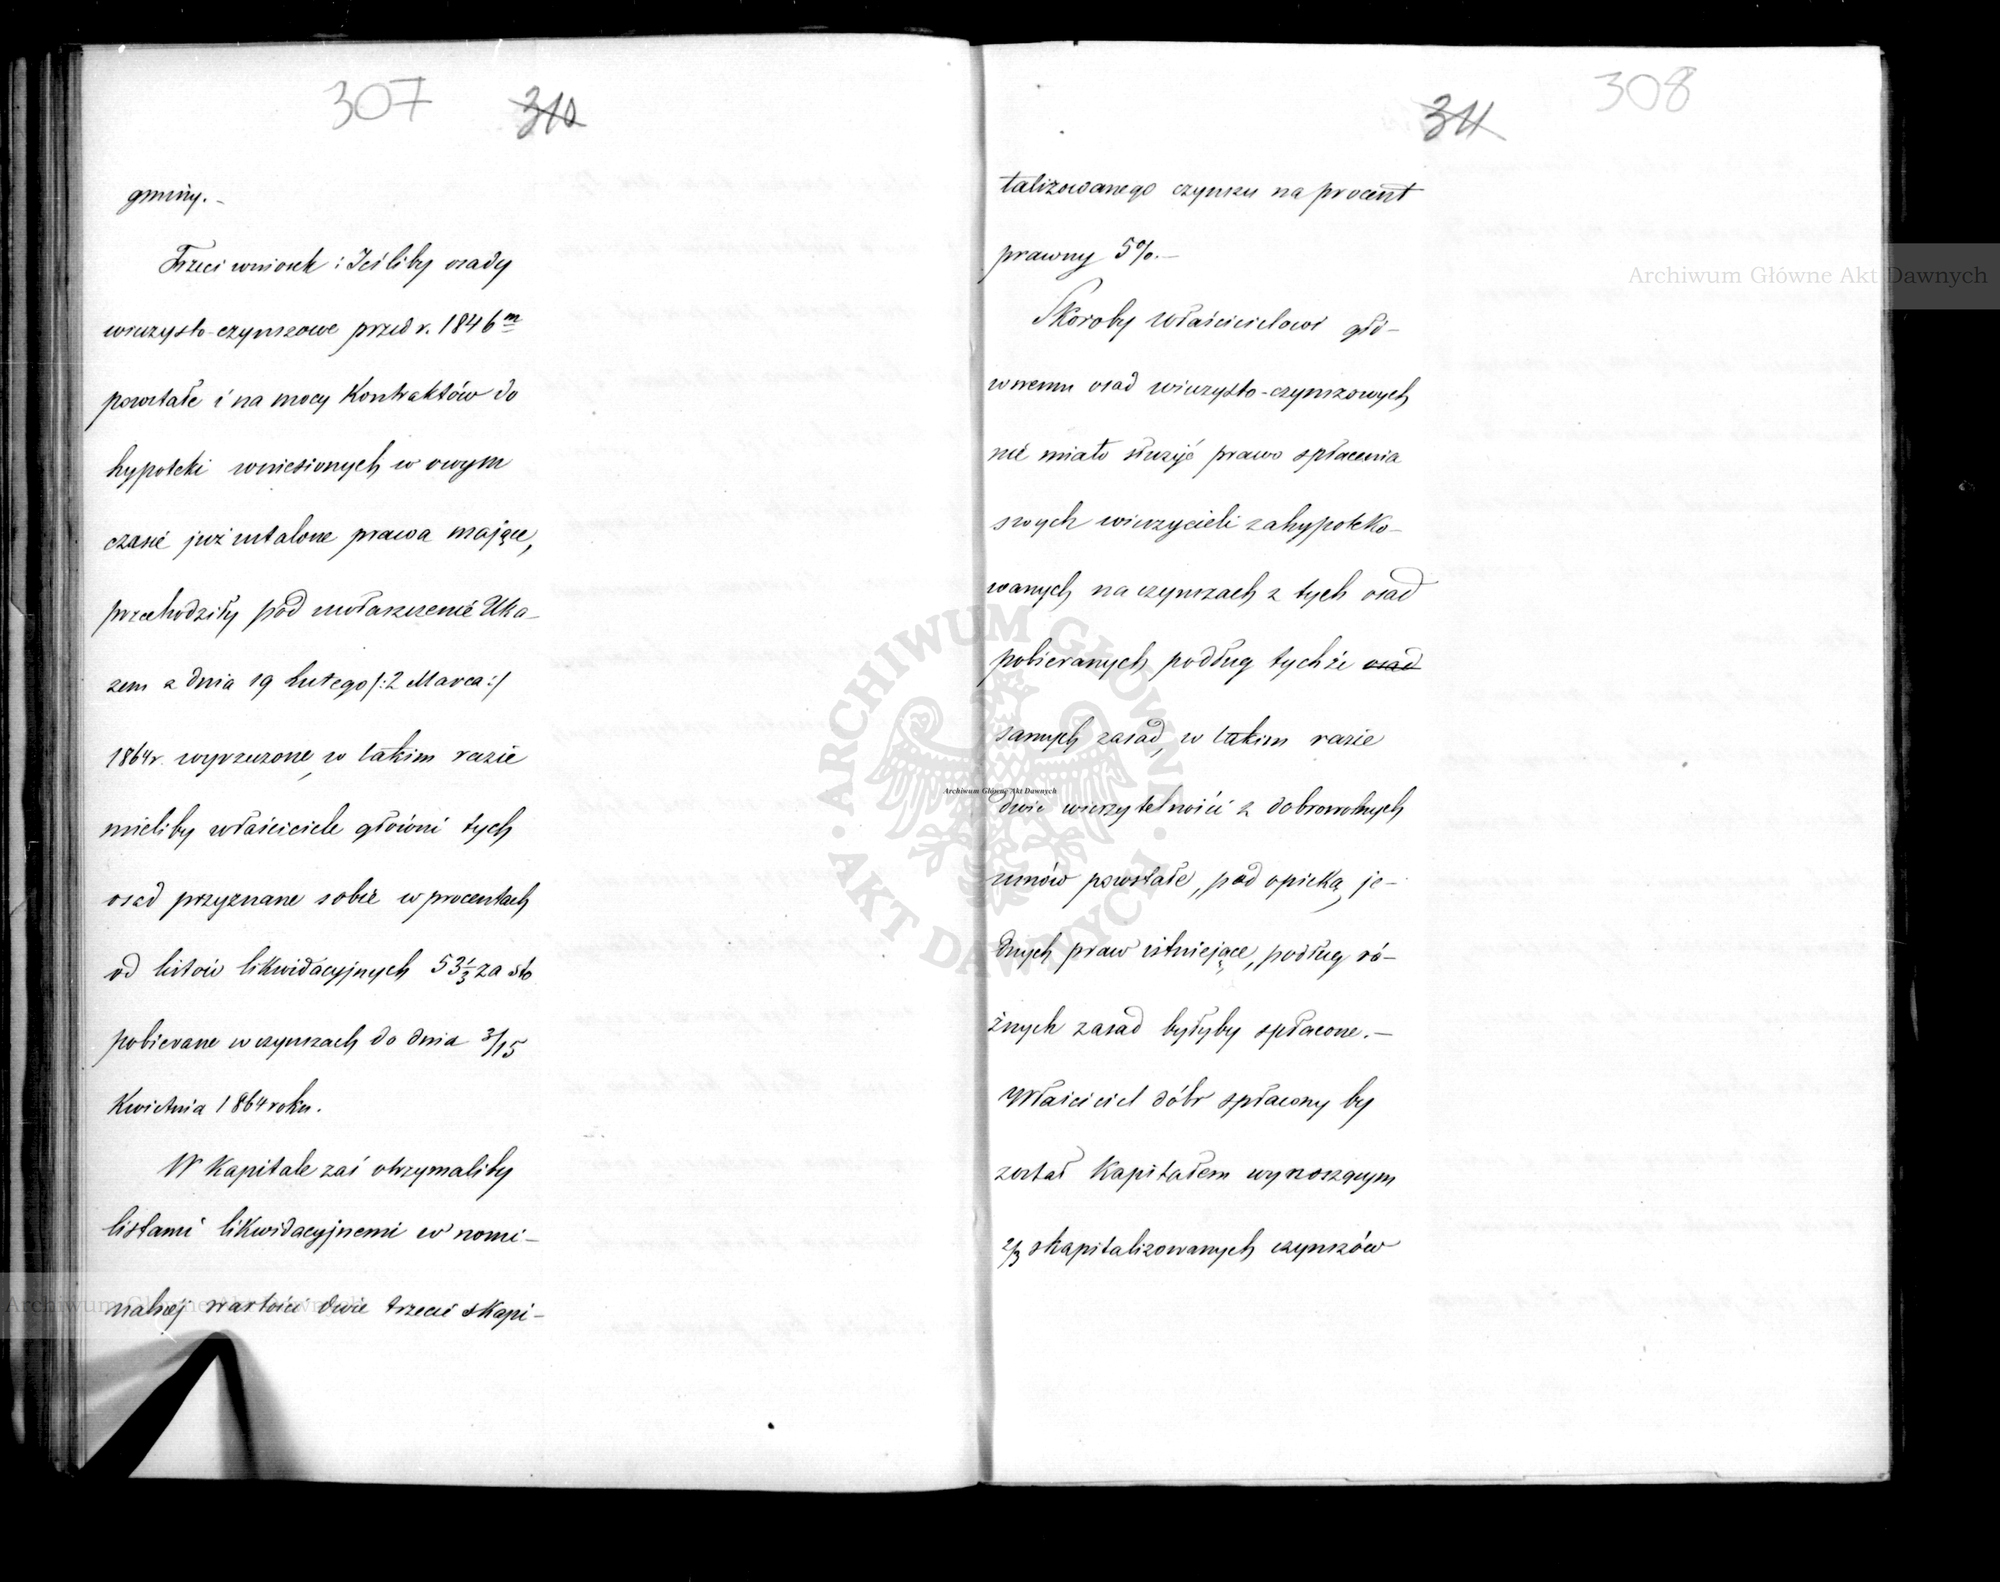 307 310
gminy.-
Trzeci wniosek: Jeśliby osady
wieczysto-czynszowe przed r. 1846m
powstałe i na mocy Kontraktów do
hypoteki wniesionych w owym
czasie już ustalone prawa mające,
przechodziły pod uwłaszczenie Uka-
zem z dnia 19 Lutego /:2 Marca:/
1864r. wyrzeczone, w takim razie
mieliby właściciele główni tych
osad przyznane sobie w procentach
od listów likwidacyjnych 53 1/3 za sto
pobierane w czynszach do dnia 3/15
Kwietnia 1864 roku.
W Kapitale zaś otrzymaliby
listami likwidacyjnemi w nomi-
nalnej wartości dwie trzecie skapi-
311 308
talizowanego czynszu na procent
prawny 5%.-
Skoroby Właścicielowi głó-
wnemu osad wieczysto-czynszowych
nie miało służyć prawo spłacenia
swych wierzycieli zahypoteko-
wanych na czynszach z tych osad
pobieranych podług tychże osad
samych zasad, w takim razie
dwie wierzytelności z dobrowolnych
umów powstałe, pod opieką je-
dnych praw istniejące, podług ró-
żnych zasad byłyby spłacone.-
Właściciel dóbr spłacony by
został Kapitałem wynoszącym
2/3 skapitalizowanych czynszów
Archiwum Główne Akt Dawnych
ARCHIWUM GŁÓWNE
· AKT DAWNYCH ·
Archiwum Główne Akt Dawnych
Archiwum Główne Akt Dawnych